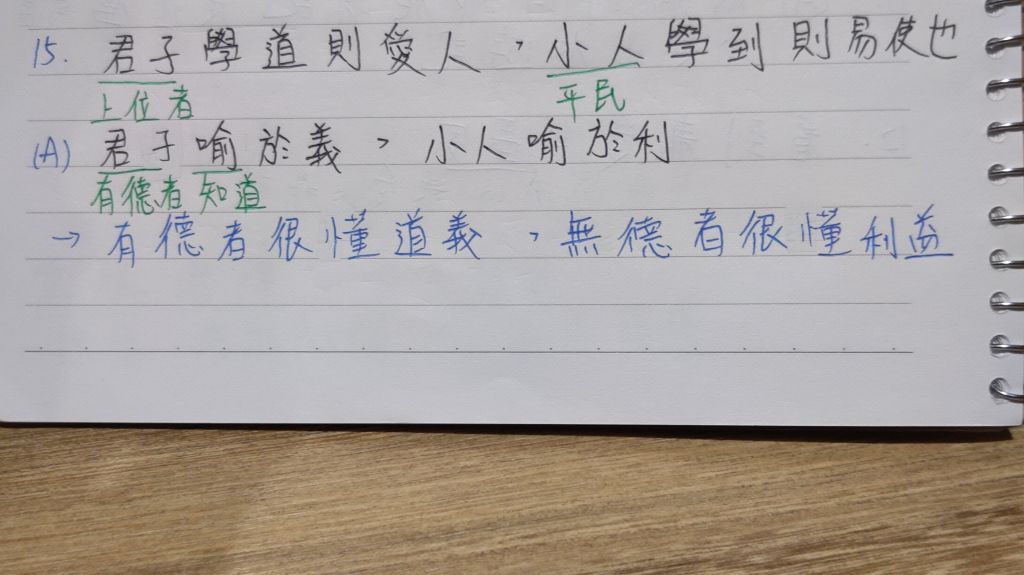 15. 君子學道則愛人，小人學到則易使也
上位者 平民
(A) 君子喻於義，小人喻於利
有德者 知道
→ 有德者很懂道義，無德者很懂利益